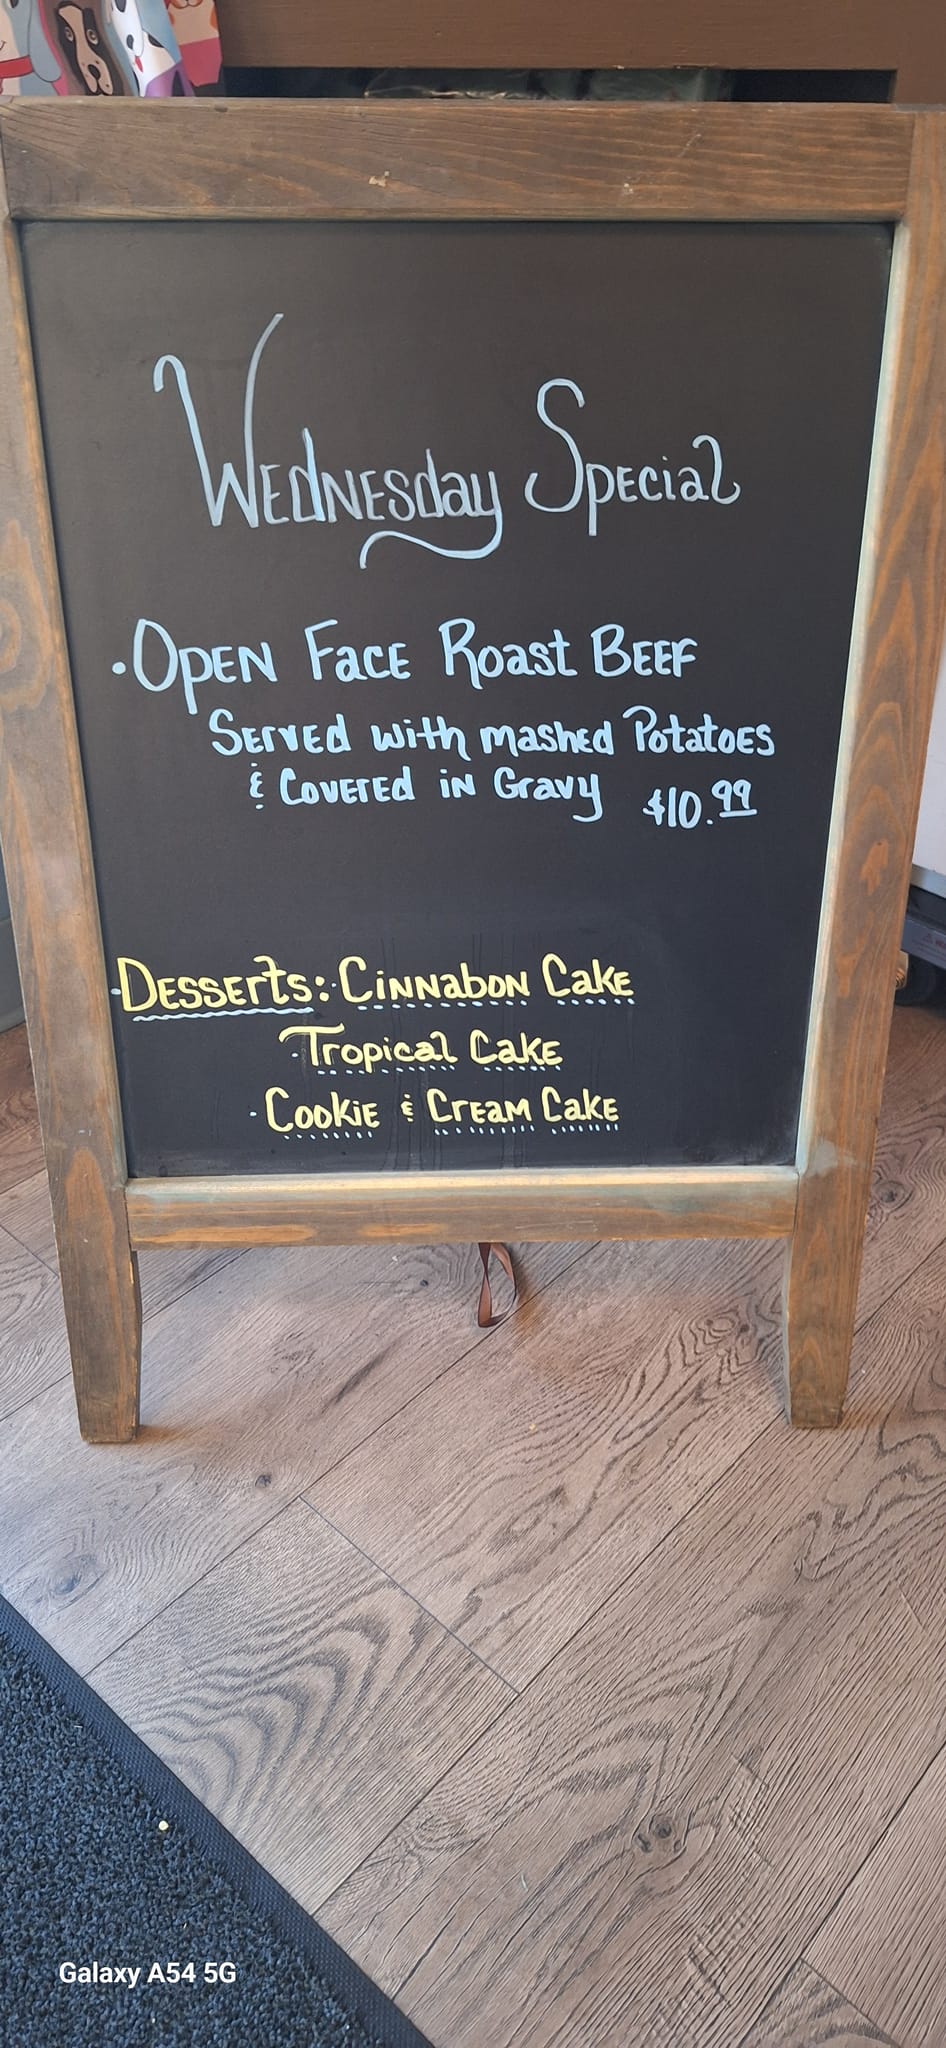 Wednesday Special
• Open Face Roast Beef
Served with mashed Potatoes
& Covered in Gravy $10.99
• Desserts: • Cinnabon Cake
• Tropical Cake
• Cookie & Cream Cake
Galaxy A54 5G